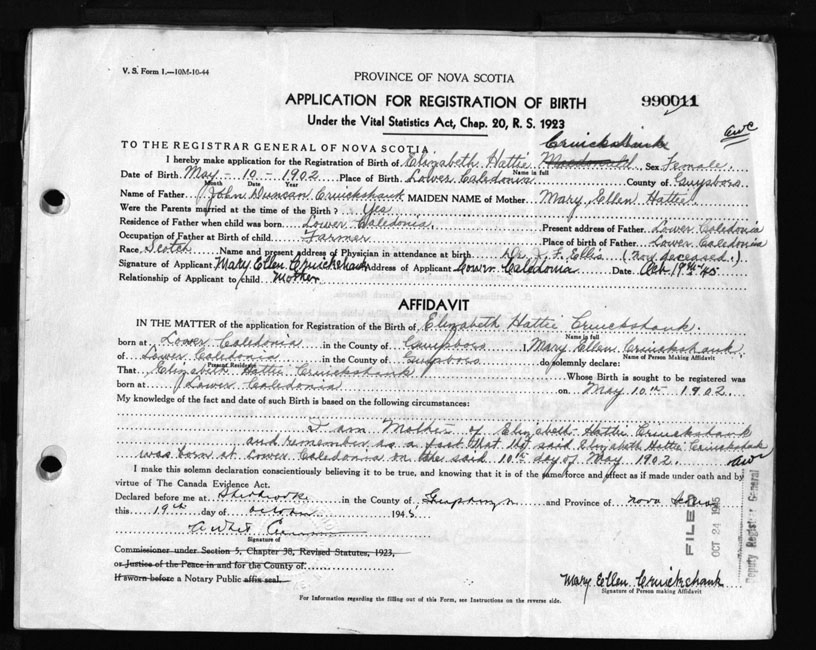 V. S. Form 1.—10M-10-44
PROVINCE OF NOVA SCOTIA
APPLICATION FOR REGISTRATION OF BIRTH
990011
Under the Vital Statistics Act, Chap. 20, R. S. 1923
awc
TO THE REGISTRAR GENERAL OF NOVA SCOTIA
Cruickshank
I hereby make application for the Registration of Birth of Elizabeth Hattie Macdonald Sex Female.
Name in full
Date of Birth May - 10 - 1902 Place of Birth Lower Caledonia County of Guysboro
Month Date Year
Name of Father John Duncan Cruickshank MAIDEN NAME of Mother Mary Ellen Hattie
Were the Parents married at the time of the Birth? Yes
Residence of Father when child was born Lower Caledonia Present address of Father Lower Caledonia
Occupation of Father at Birth of child Farmer Place of birth of Father Lower Caledonia
Race Scotch Name and present address of Physician in attendance at birth Dr. J. F. Ellis (now deceased.)
Signature of Applicant Mary Ellen Cruickshank Address of Applicant Lower Caledonia Date Oct. 19th-45
Relationship of Applicant to child Mother
AFFIDAVIT
IN THE MATTER of the application for Registration of the Birth of Elizabeth Hattie Cruickshank.
Name in full
born at Lower Caledonia in the County of Guysboro I, Mary Ellen Cruickshank
Name of Person Making Affidavit
of Lower Caledonia in the County of Guysboro do solemnly declare:
Present Residence
That Elizabeth Hattie Cruickshank Whose Birth is sought to be registered was
born at Lower Caledonia on May 10th 1902.
My knowledge of the fact and date of such Birth is based on the following circumstances:
I am Mother of Elizabeth Hattie Cruickshank
and remember as a fact that the said Elizabeth Hattie Cruickshank
was born at Lower Caledonia on the said 10th day of May 1902.
awc
I make this solemn declaration conscientiously believing it to be true, and knowing that it is of the same force and effect as if made under oath and by
virtue of The Canada Evidence Act.
Declared before me at Sherbrooke in the County of Guysboro and Province of Nova Scotia
this 19th day of October 1945
Signature of
Commissioner under Section 5, Chapter 38, Revised Statutes, 1923,
or Justice of the Peace in and for the County of
If sworn before a Notary Public affix seal.
FILED
OCT 24 1945
Deputy Registrar General
Mary Ellen Cruickshank
Signature of Person making Affidavit
For Information regarding the filling out of this Form, see Instructions on the reverse side.